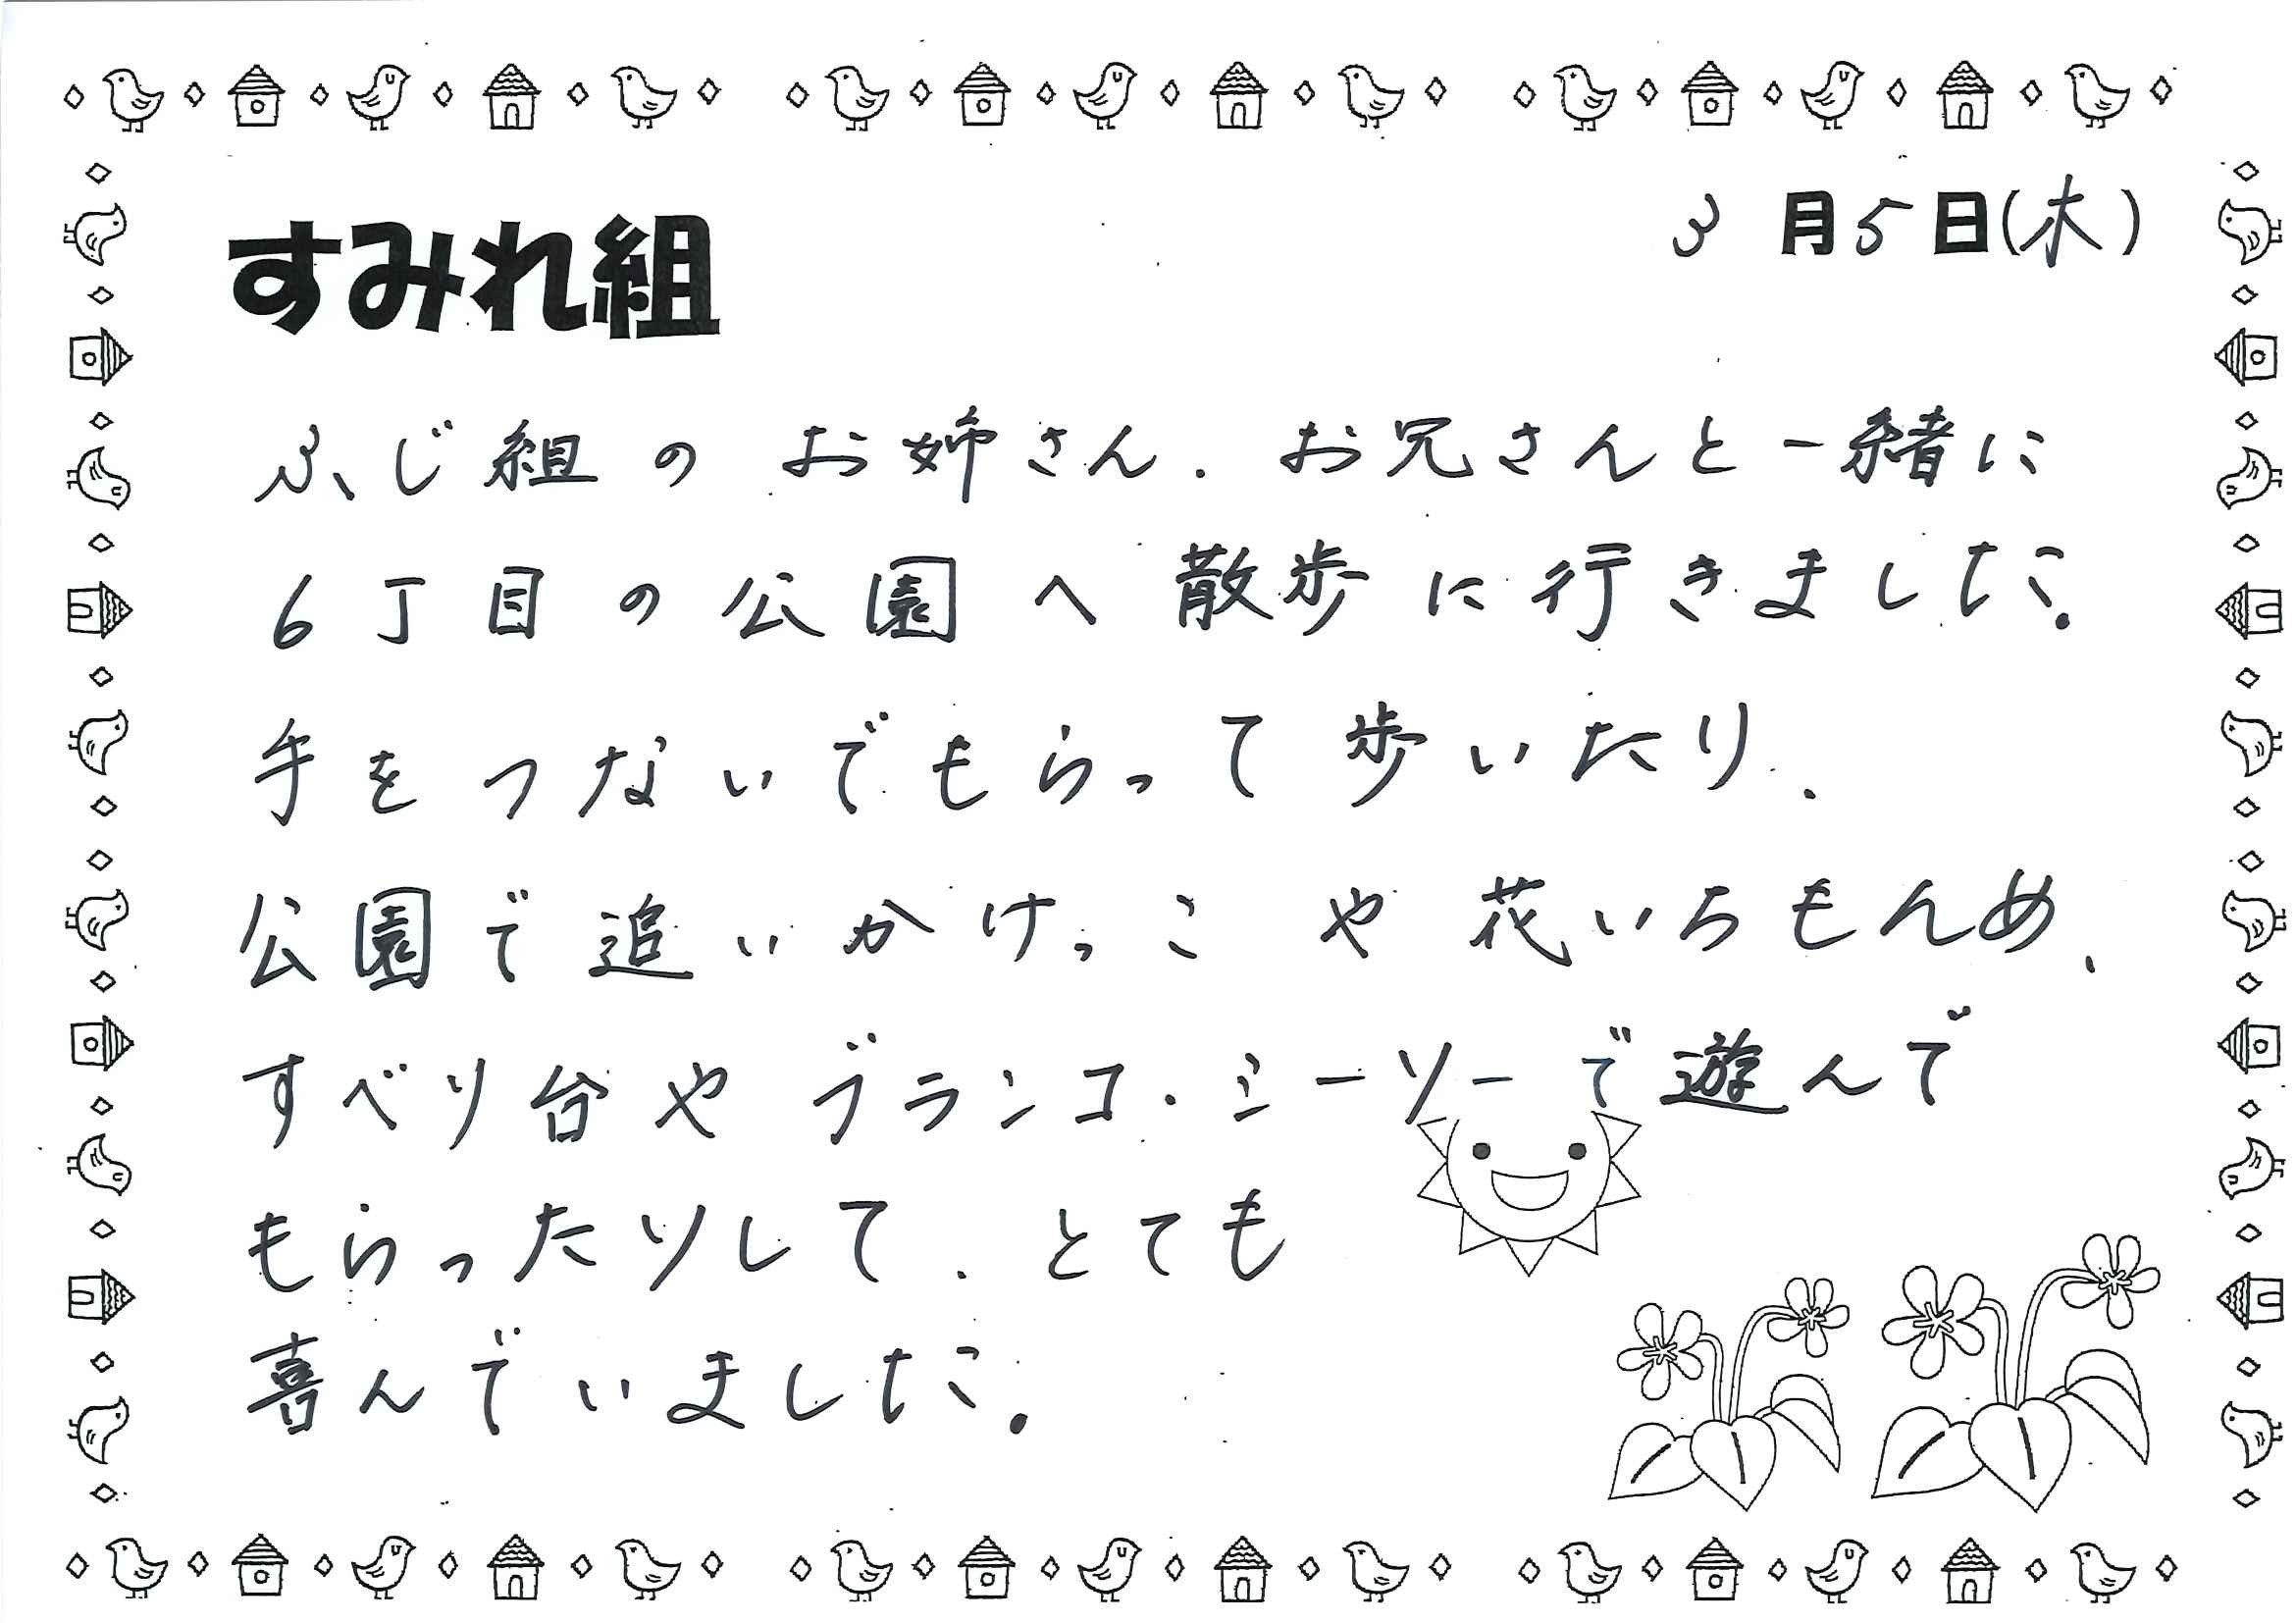 3月5日(木)
すみれ組
ふじ組のお姉さん、お兄さんと一緒に
6丁目の公園へ散歩に行きました。
手をつないでもらって歩いたり、
公園で追いかけっこや花いちもんめ、
すべり台やブランコ・シーソーで遊んで
もらったりして、とても
喜んでいました。